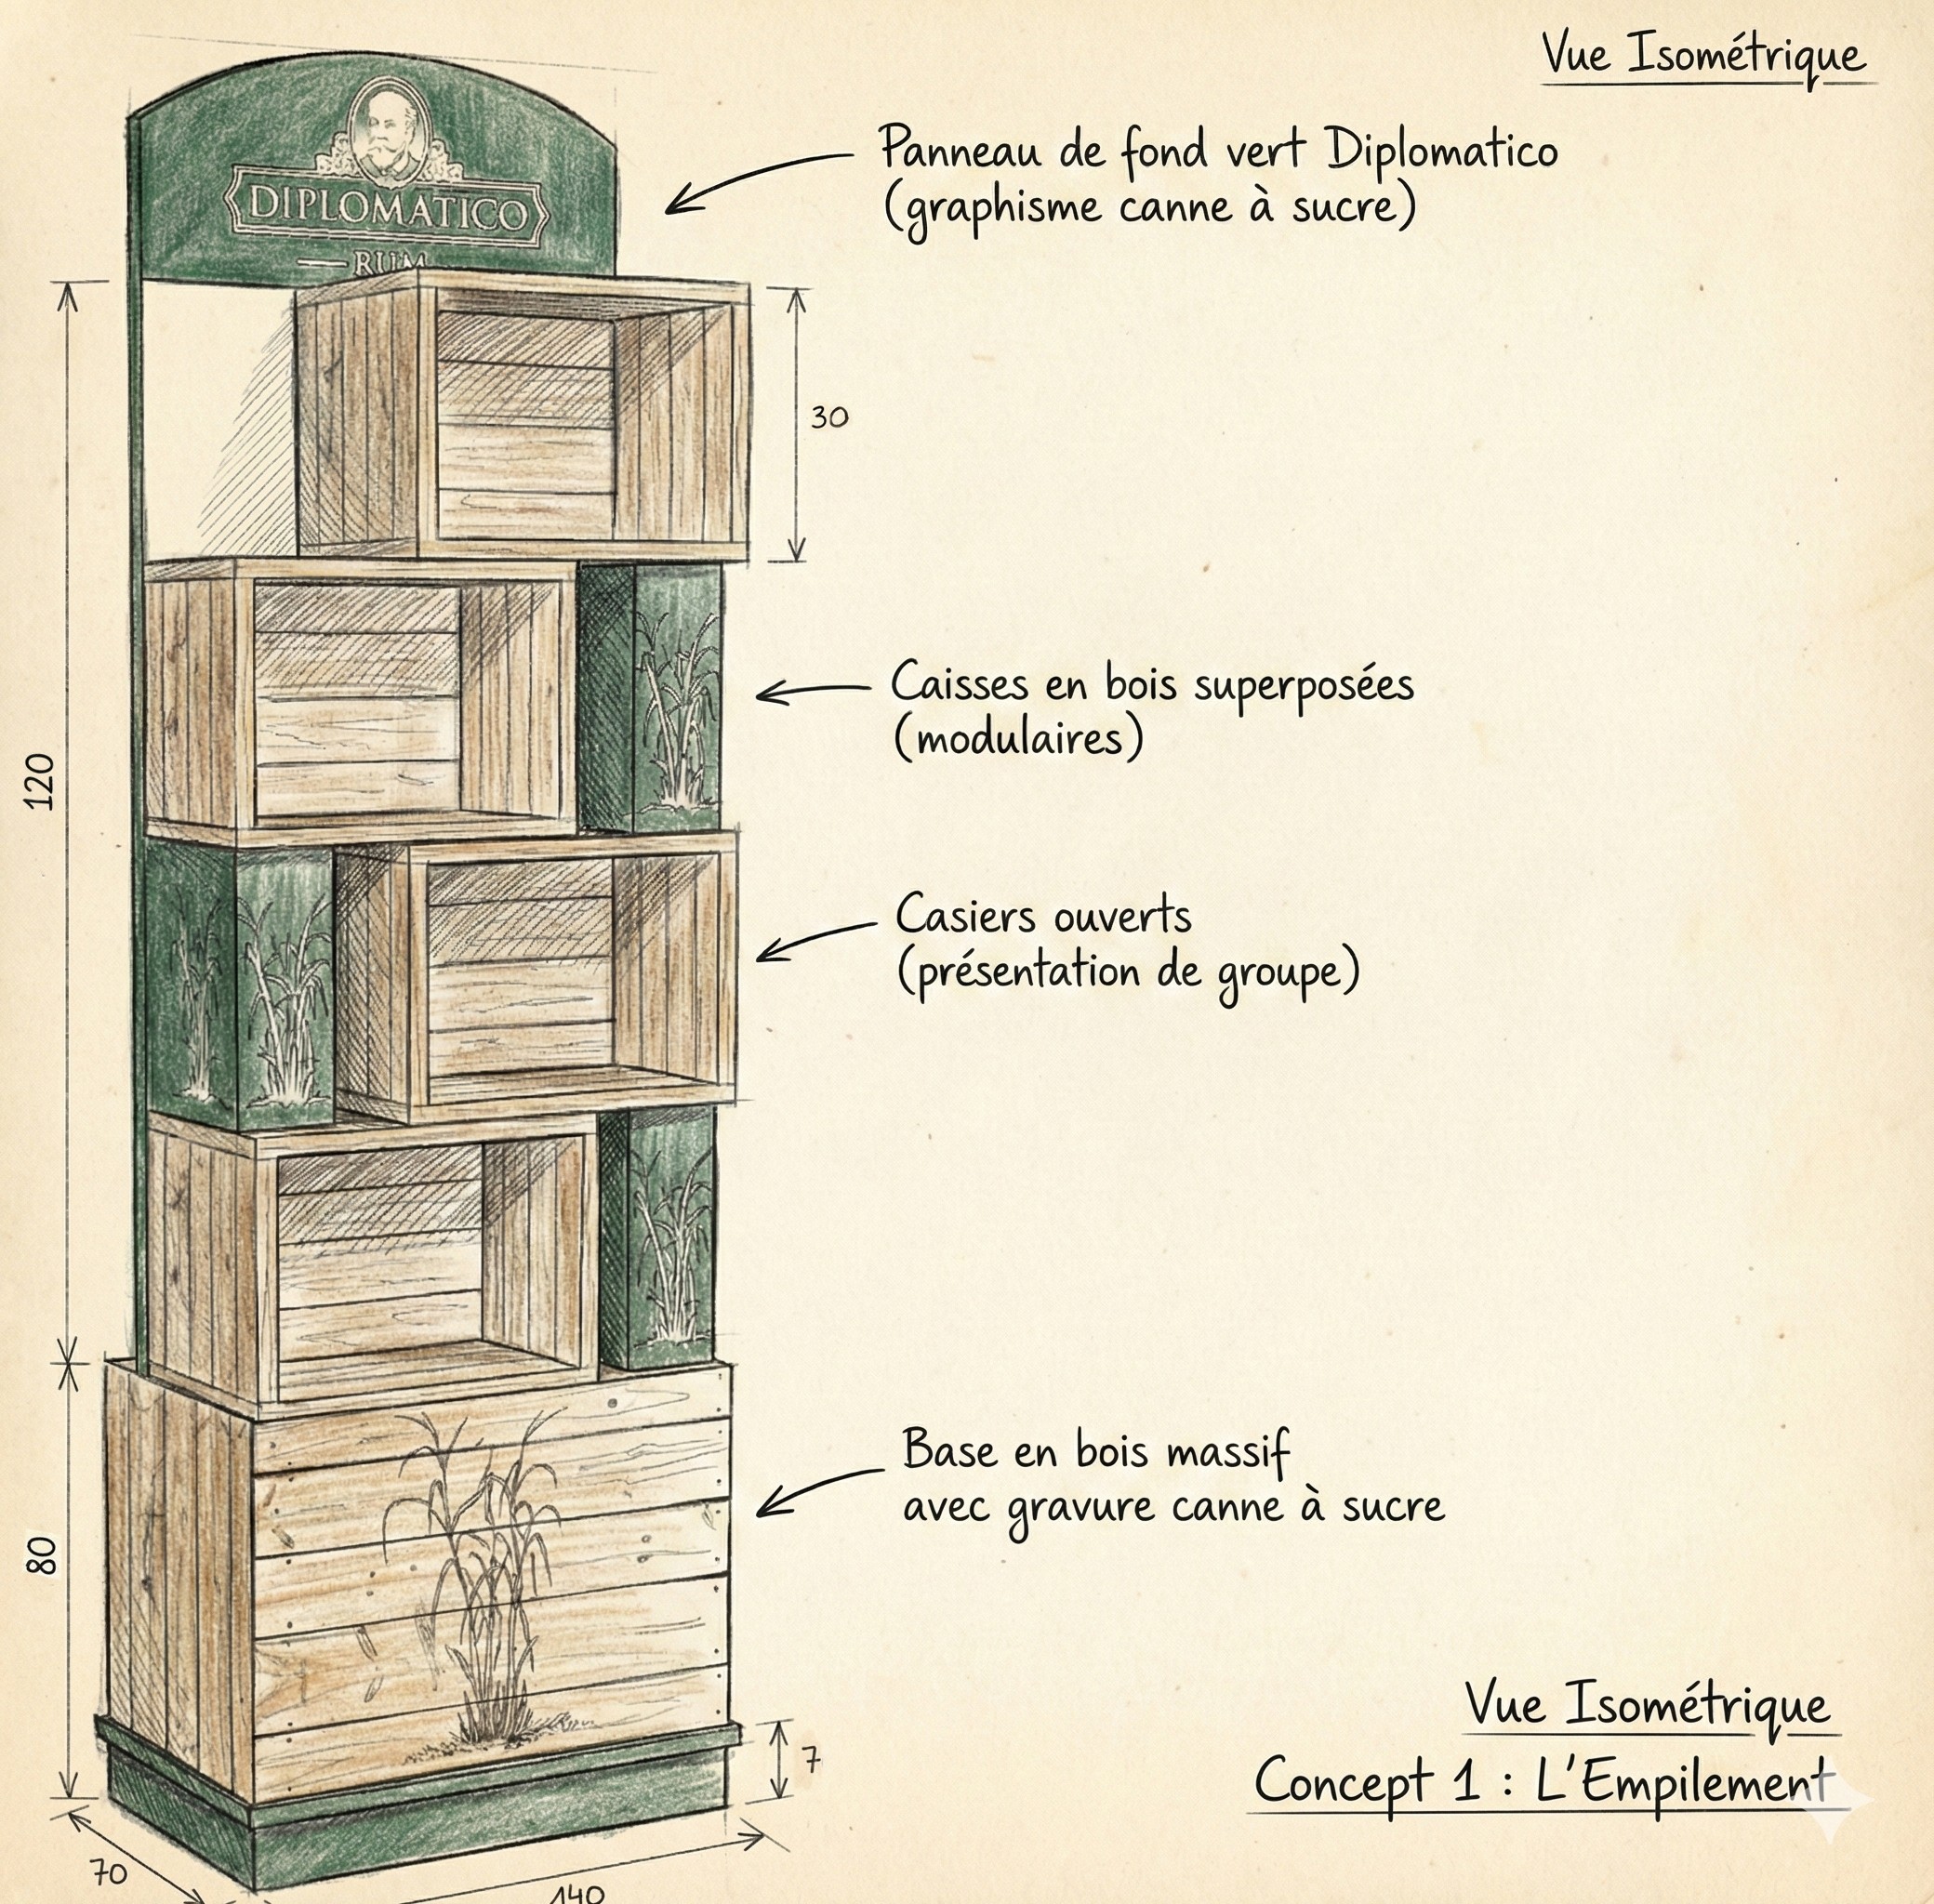 Vue Isométrique
DIPLOMATICO
RUM
Panneau de fond vert Diplomatico
(graphisme canne à sucre)
30
Caisses en bois superposées
(modulaires)
120
Casiers ouverts
(présentation de groupe)
Base en bois massif
avec gravure canne à sucre
80
7
Vue Isométrique
Concept 1 : L'Empilement
70
140